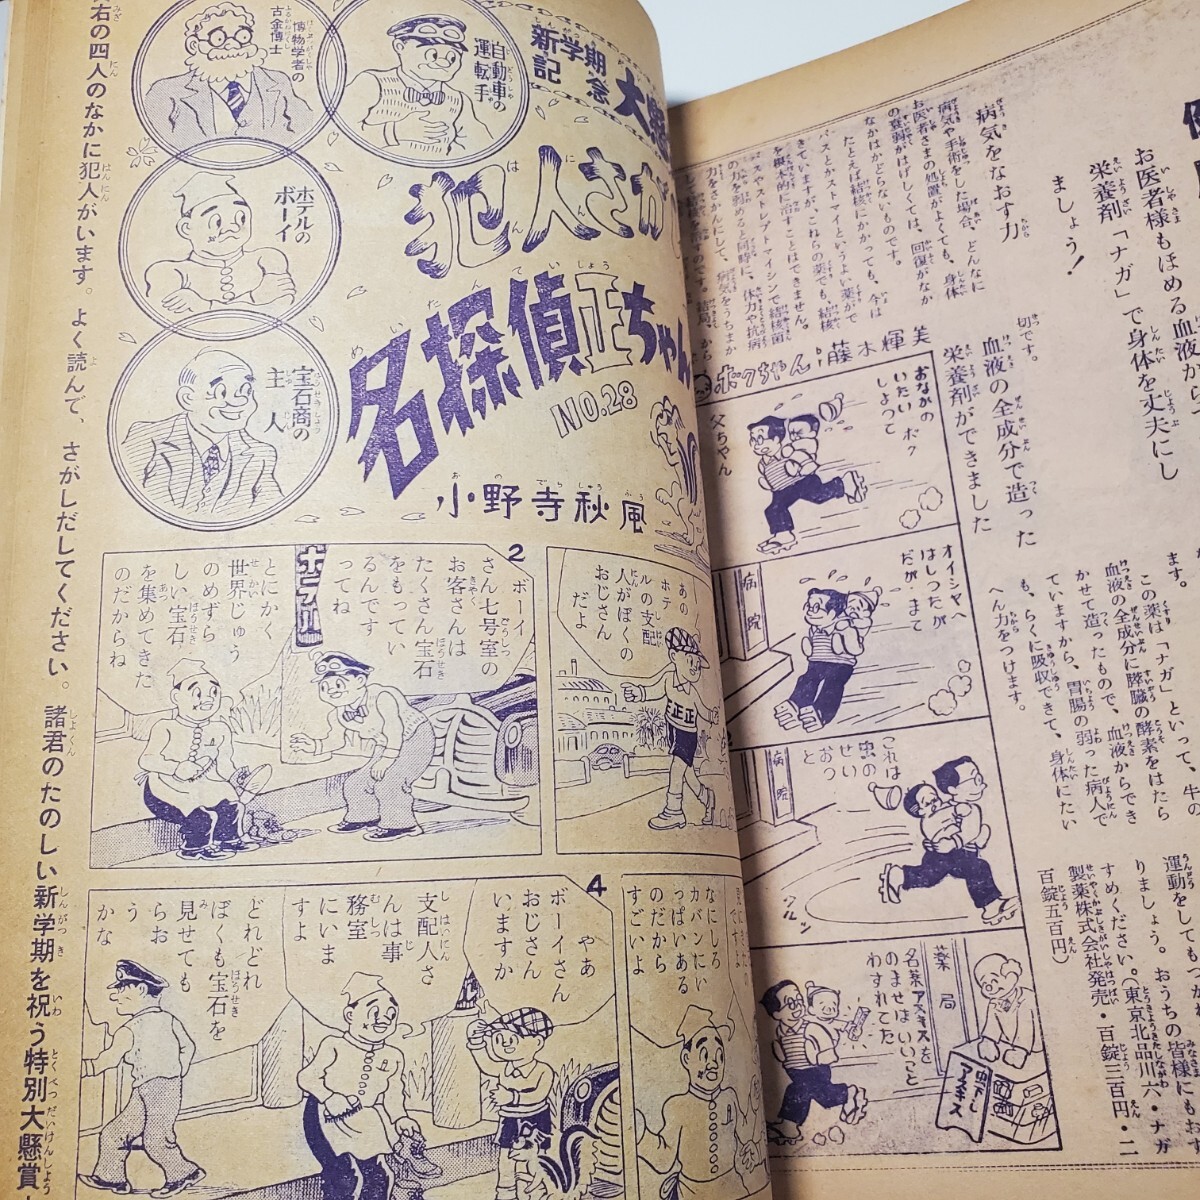 新学期
記念
大懸
犯人さが
名探偵正ちゃん
NO.28
小野寺秋風
自動車の
運転手
博物学者の
古金博士
ホテルの
ボーイ
宝石商の
主人
右の四人のなかに犯人がいます。よく読んで、さがしだしてください。諸君のたのしい新学期を祝う特別大懸賞
あの
ホテ
ルの支配
人がぼくの
おじさん
だよ
2
ボーイ
さん七号室の
お客さんは
たくさん宝石
をもってい
るんです
ってね
ホテル
とにかく
世界じゅう
のめずら
しい宝石
を集めてきた
のだからね
正正
なにしろ
カバンにい
っぱいある
のだから
すごいよ
4
やあ
ボーイさん
おじさん
いますか
支配人さ
んは事
務室
にいま
すよ
どれどれ
ぼくも宝石を
見せても
らお
かな
お医者様もほめる血液から
栄養剤「ナガ」で身体を丈夫にし
ましょう!
病気をなおす力
病気や手術をした場合、どんなに
お医者さまの処置がよくても、身体
の衰弱がはげしくては、回復がなか
なかはかどらないものです。
たとえば結核にかかっても、今は
パスとかストマイというよい薬がで
きていますが、これらの薬でも、結核
を根本的に治すことはできません。
パスやストレプトマイシンで結核菌
の力を弱めると同時に、体力や抗病
力をさかんにして、病気をうちまか
して結核を治すのです。結局、から
切です。
血液の全成分で造った
栄養剤ができました
この薬は「ナガ」といって、牛の
血液の全成分に膵臓の酵素をはたら
かせて造ったもので、血液からでき
ていますから、胃腸の弱った病人で
も、らくに吸収できて、身体にたい
へん力をつけます。
運動をしてもつかれ
りましょう。おうちの皆様にもおす
すめください。(東京北品川六・ナガ
製薬株式会社発売・百錠三百円・二
百錠五百円)
ます。
ボクちゃん
藤木輝美
おなかの
いたい ボク
しょって
父ちゃん
オイシャへ
はしったが
だが・まて
病院
これは
虫の
せい
だっ
と
病院
クルッ
名薬アスキスを
のませばいいっこと
わすれてた
薬局
虫下し
アスキス